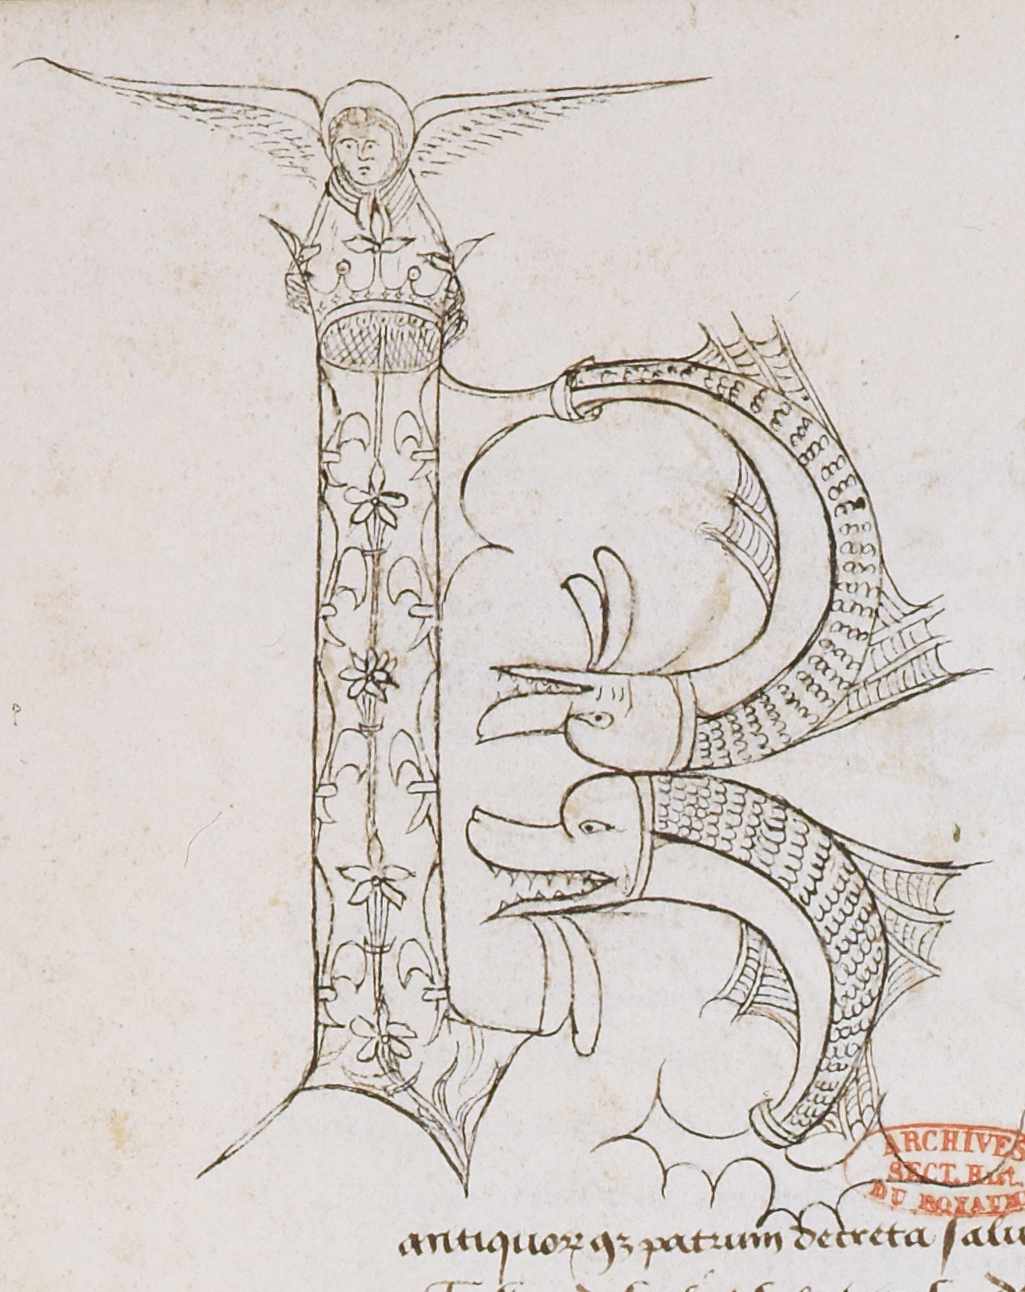 K
ARCHIVES
SECT. Hist.
DU ROYAUME
antiquorꝝ qꝫ patrum decreta salu